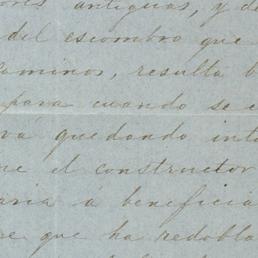 antiguas, y de
del escombro que
caminos, resulta b
para cuando se e
vá quedando int
ue el constructor
aria á beneficia
re que ha redobla